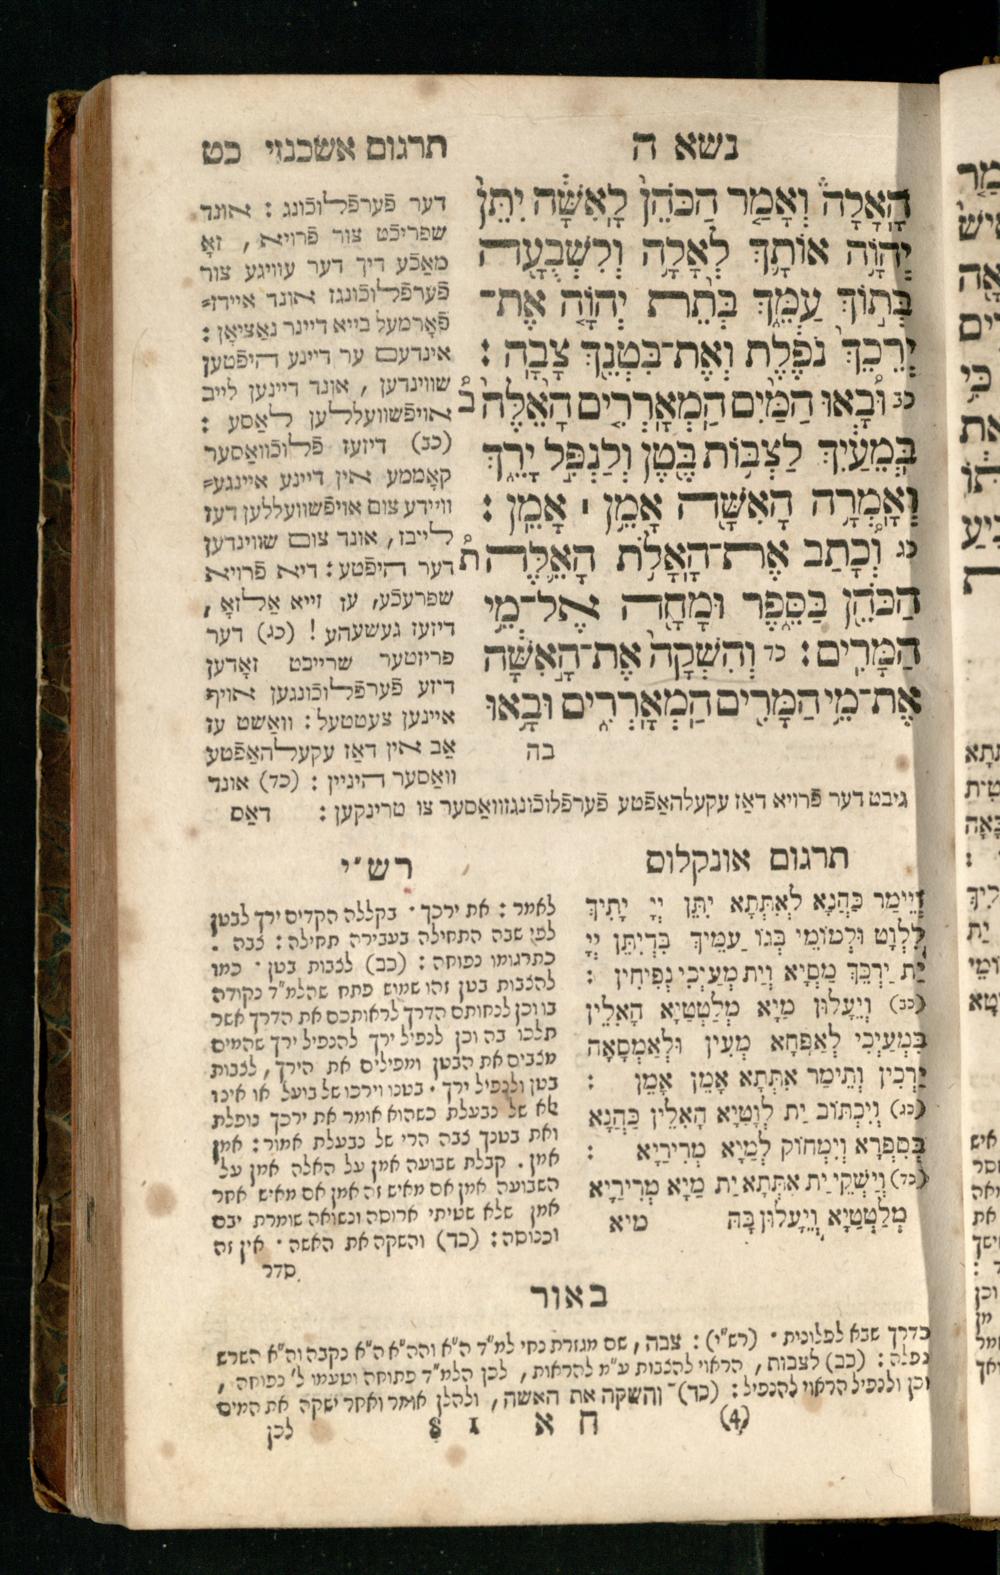 נשא ה
תרגום אשכנזי כט
הָאָלָה וְאָמַר הַכֹּהֵן לָאִשָּׁה יִתֵּן
יְהוָֹה אוֹתָךְ לְאָלָה וְלִשְׁבֻעָה
בְּתוֹךְ עַמֵּךְ בְּתֵת יְהוָֹה אֶת־
יְרֵכֵךְ נֹפֶלֶת וְאֶת־בִּטְנֵךְ צָבָה :
כב וּבָאוּ הַמַּיִם הַמְאָרְרִים הָאֵלֶּה
בְּמֵעַיִךְ לַצְבּוֹת בֶּטֶן וְלַנְפִּל יָרֵךְ
וְאָמְרָה הָאִשָּׁה אָמֵן ׀ אָמֵן :
כג וְכָתַב אֶת־הָאָלֹת הָאֵלֶּה
הַכֹּהֵן בַּסֵּפֶר וּמָחָה אֶל־מֵי
הַמָּרִים : כד וְהִשְׁקָה אֶת־הָאִשָּׁה
אֶת־מֵי הַמָּרִים הַמְאָרְרִים וּבָאוּ
בה
דער פֿערפֿלוכֿונג : אונד
שפריכֿט צור פֿרויא , זאָ
מאַכֿע דיך דער עוויגע צור
פֿערפֿלוכֿונגז אונד איידז=
פֿאָרמעל בייא דיינר נאַציאָן :
אינדעם ער דיינע היפֿטען
שווינדען , אונד דיינען לייב
אויפֿשוועללען לאַסע :
(כב) דיזעז פֿלוכֿוואַסער
קאָממע אין דיינע איינגע=
ווידע צום אויפֿשוועללען דעז
לייבז , אונד צום שווינדען
דער היפֿטע : דיא פֿרויא
שפרעכֿע , עז זייא אַלזאָ ,
דיזעז געשעהע ! (כג) דער
פריזטער שרייבט זאָדען
דיזע פֿערפֿלוכֿונגען אויף
איינען צעטטעל : וואַשט עז
אַב אין דאַז עקעלהאַפֿטע
וואַסער היניין : (כד) אונד
גיבט דער פֿרויא דאַז עקעלהאַפֿטע פֿערפֿלוכֿונגזוואַסער צו טרינקען : דאַס
תרגום אונקלוס
וְיֵימַר כַּהֲנָא לְאִתְּתָא יִתֵּן יְיָ יָתִיךְ
לִלְוָט וּלְמוֹמֵי בְּגוֹ עַמֵּיךְ בִּדְיִתֵּן יְיָ
יַת יַרְכֵּךְ מַסְיָא וְיַת מְעַיְכִי נְפִיחִין :
(כב) וְיֵעֲלוּן מַיָּא מְלַטְטַיָּא הָאִלֵּין
בִּמְעַיְכִי לְאַפָּחָא מְעִין וּלְאַמְסָאָה
יַרְכִין וְתֵימַר אִתְּתָא אָמֵן אָמֵן :
(כג) וְיִכְתּוֹב יַת לְוָטַיָּא הָאִלֵּין כַּהֲנָא
בְּסִפְרָא וְיִמְחוֹק לְמַיָּא מְרִירַיָּא :
(כד) וְיַשְׁקֵי יַת אִתְּתָא יַת מַיָּא מְרִירַיָּא
מְלַטְטַיָּא וְיֵעֲלוּן בָּהּ מיא
רש״י
לאמר : את ירכך · בקללה הקדים ירך לבטן
לפי שבה התחילה בעבירה תחילה : צבה ·
כתרגומו נפוחה : (כב) לצבות בטן · כמו
להצבות בטן זהו שמוש פתח שהלמ״ד נקודה
בו וכן לנחותם הדרך לראותכם את הדרך אשר
תלכו בה וכן לנפיל ירך להנפיל ירך שהמים
מצבים את הבטן ומפילים את הירך , לצבות
בטן ולנפיל ירך · בטנו וירכו של בועל או אינו
אלא של נבעלת כשהוא אומר את ירכך נופלת
ואת בטנך צבה הרי של נבעלת אמור : אמן
אמן · קבלת שבועה אמן על האלה אמן על
השבועה אמן אם מאיש זה אמן אם מאיש אחר
אמן שלא שטיתי ארוסה ונשואה שומרת יבם
וכנוסה : (כד) והשקה את האשה · אין זה
סדר
באור
כדרך שבא לפלונית · (רש״י) : צבה , שם מגזרת נחי למ״ד ה״א והה״א ה״א נקבה וה״א השרש
נפלה : (כב) לצבות , הראוי להצבות ע״מ להראות , לכן הלמ״ד פתוחה וטעמו ל׳ נפוחה ,
וכן ולנפיל הראוי להנפיל : (כד) והשקה את האשה , ולהלן אומר ואחר ישקה את המים
(4) ח א I 8 לכן